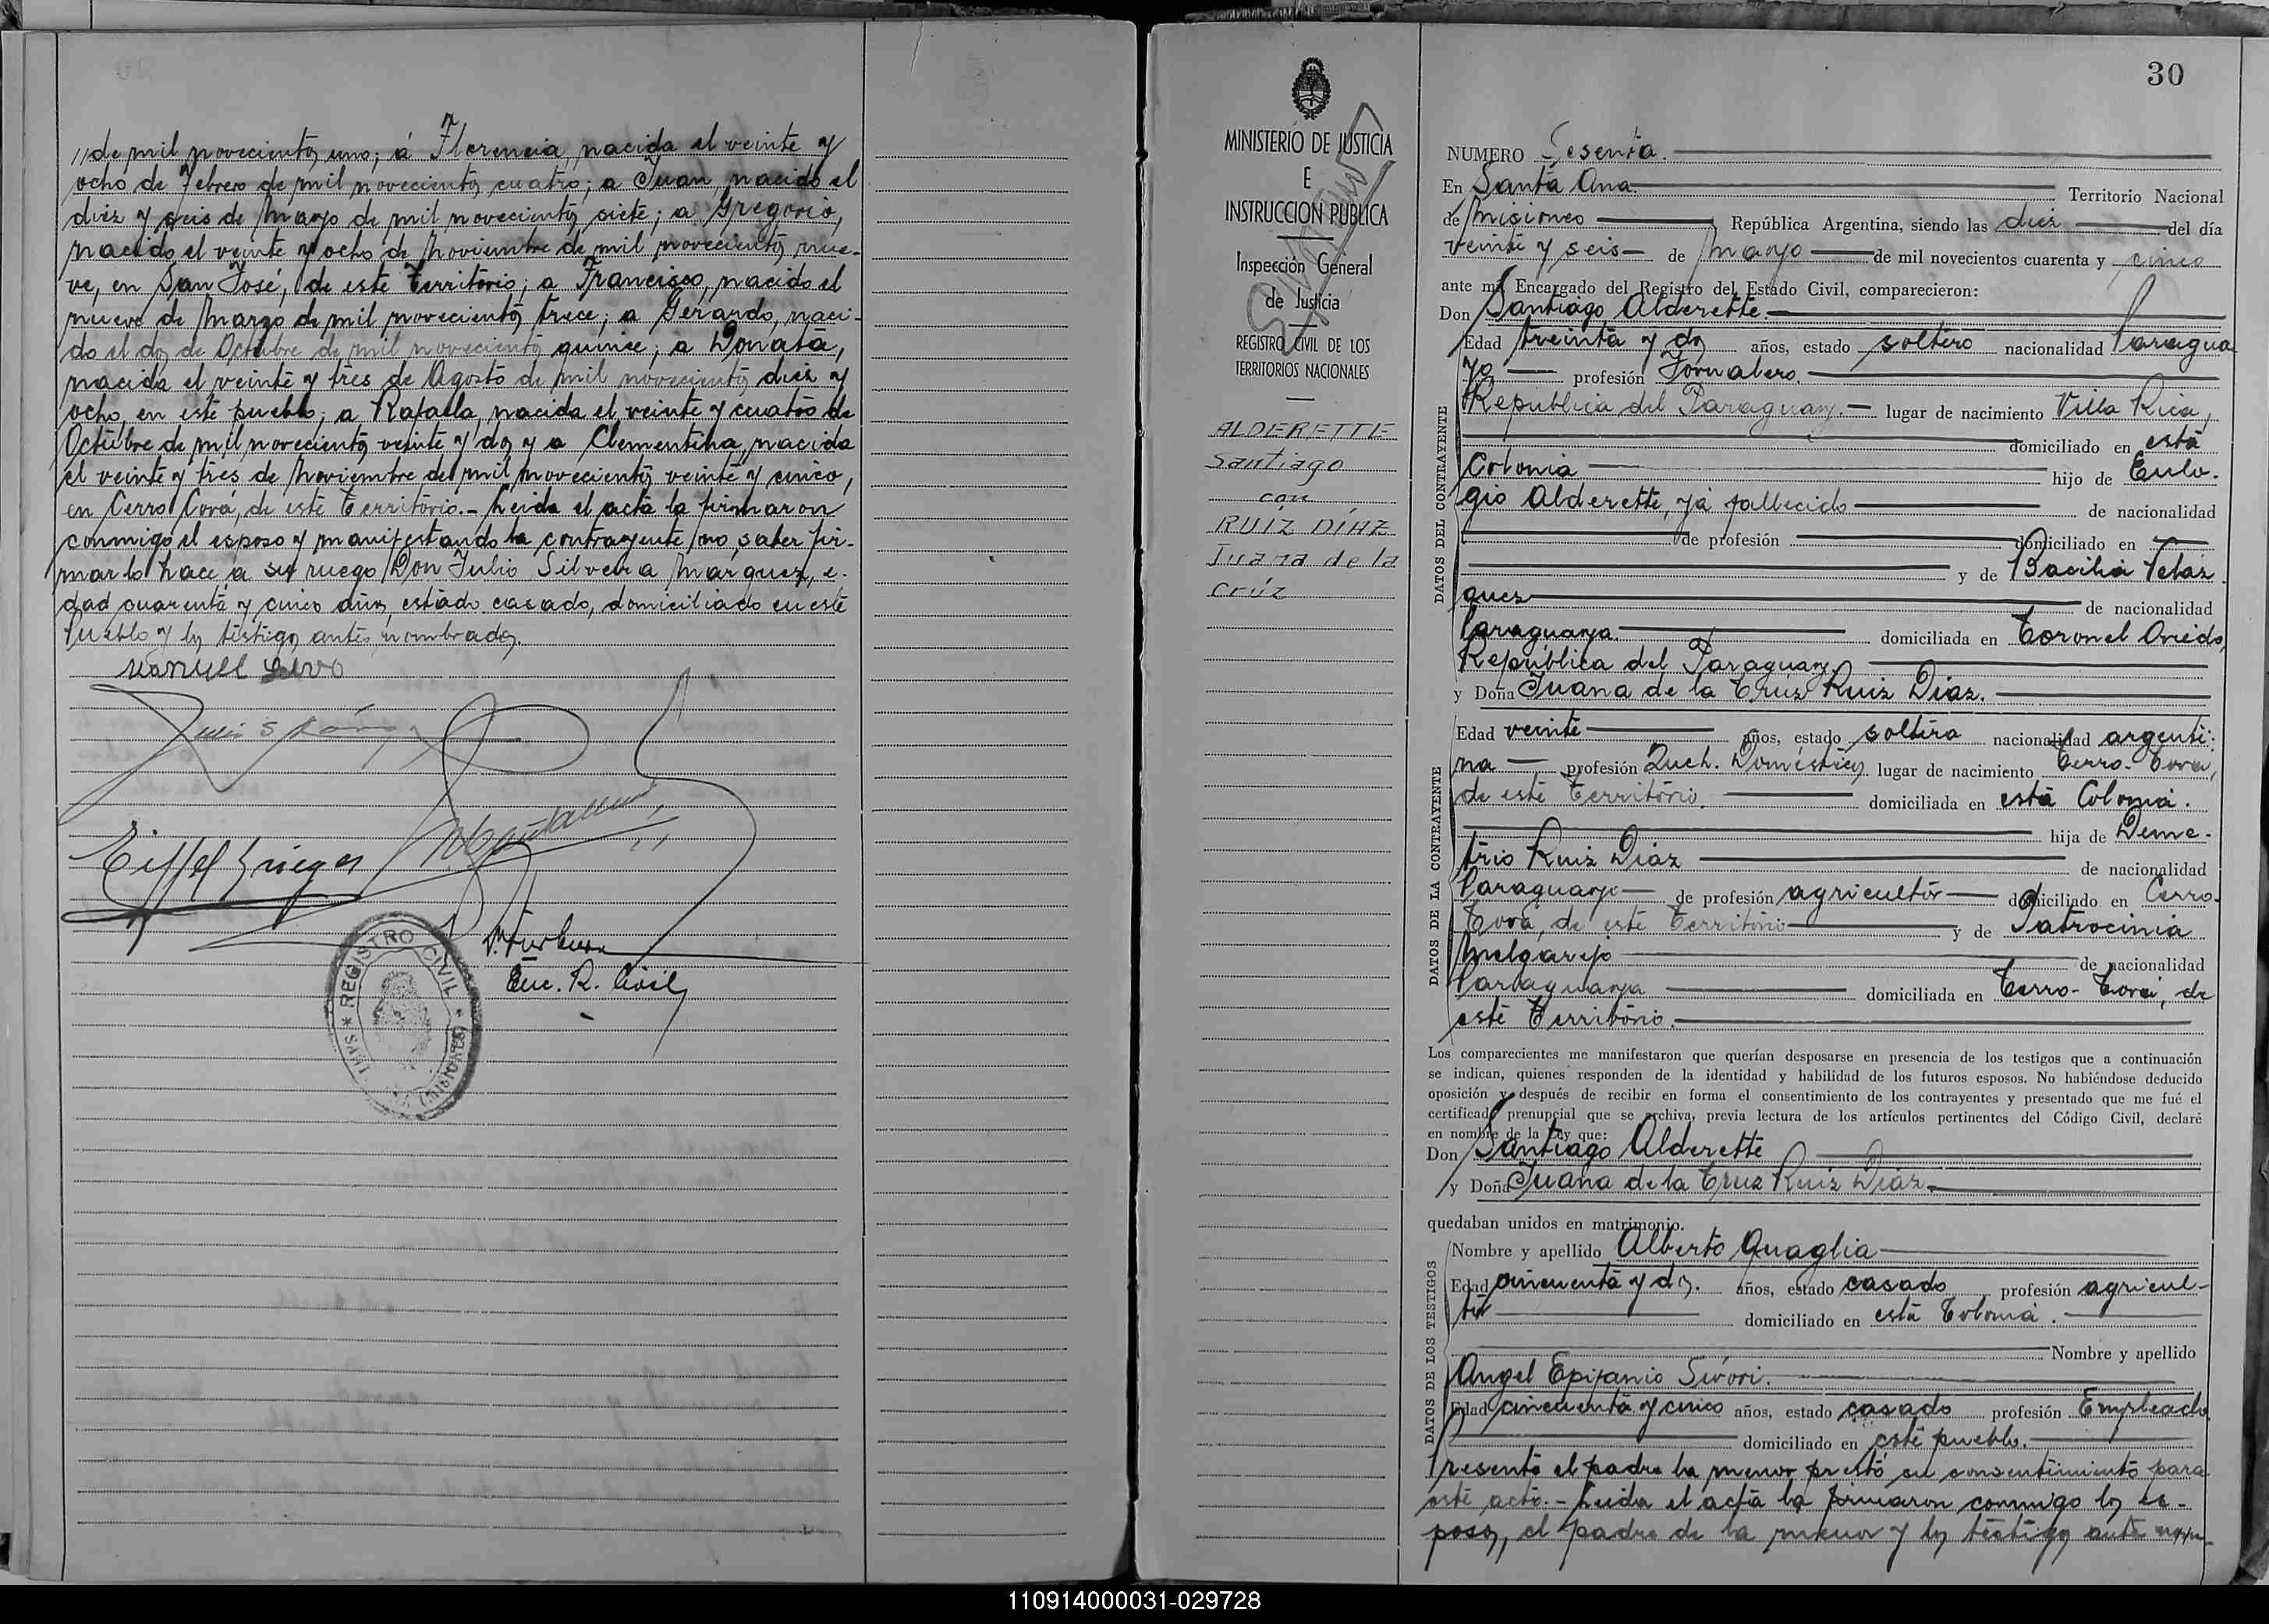 //de mil novecientos uno; á Florencia, nacida el veinte y
ocho de Febrero de mil novecientos cuatro; a Juan, nacido el
diez y seis de Mayo de mil novecientos siete; a Gregorio,
nacido el veinte y ocho de Noviembre de mil novecientos nue-
ve, en San José, de este Territorio; a Francisco, nacido el
nueve de Marzo de mil novecientos trece; a Gerardo, naci-
do el dos de Octubre de mil novecientos quince; a Donata,
nacida el veinte y tres de Agosto de mil novecientos diez y
ocho, en este pueblo; a Rafaela, nacida el veinte y cuatro de
Octubre de mil novecientos veinte y dos y a Clementina, nacida
el veinte y tres de Noviembre de mil novecientos veinte y cinco,
en Cerro Corá, de este Territorio.- Leida el acta la firmaron
conmigo, el esposo y manifestando la contrayente no saber fir-
mar lo hace a su ruego Don Julio Silveira Marquez, e-
dad cuarenta y cinco años, estado casado, domiciliado en este
Pueblo y los testigos antes nombrados.
Manuel
Enc. R. Civil
REGISTRO CIVIL * SANTA (MISIONES) *
MINISTERIO DE JUSTICIA
E
INSTRUCCION PUBLICA
Inspección General
de Justicia
REGISTRO CIVIL DE LOS
TERRITORIOS NACIONALES
ALDERETTE
Santiago
con
RUÍZ DÍAZ
Juana de la
Crúz
30
NUMERO Sesenta.
En Santa Ana. Territorio Nacional
de Misiones República Argentina, siendo las diez del día
veinte y seis de Mayo de mil novecientos cuarenta y cinco
ante mí, Encargado del Registro del Estado Civil, comparecieron:
Don Santiago Alderette.
DATOS DEL CONTRAYENTE
Edad treinta y dos años, estado soltero nacionalidad Paragua
yo profesión Jornalero.
República del Paraguay. lugar de nacimiento Villa Rica,
domiciliado en esta
Colonia hijo de Eulo-
gio Alderette, ya fallecido de nacionalidad
de profesión domiciliado en
y de Bacilia Velaz
quez de nacionalidad
Paraguaya. domiciliada en Coronel Oviedo,
República del Paraguay.
y Doña Juana de la Cruz Ruiz Diaz.
DATOS DE LA CONTRAYENTE
Edad veinte años, estado soltera nacionalidad argenti-
na profesión Queh. Domésticos lugar de nacimiento Cerro-Corá,
de este Territorio. domiciliada en esta Colonia.
hija de Deme-
trio Ruiz Diaz de nacionalidad
Paraguayo de profesión agricultor domiciliado en Cerro-
Corá, de este Territorio y de Patrocinia
Melgarejo de nacionalidad
Paraguaya domiciliada en Cerro-Corá, de
este Territorio.
Los comparecientes me manifestaron que querían desposarse en presencia de los testigos que a continuación
se indican, quienes responden de la identidad y habilidad de los futuros esposos. No habiéndose deducido
oposición y después de recibir en forma el consentimiento de los contrayentes y presentado que me fué el
certificado prenupcial que se archiva, previa lectura de los artículos pertinentes del Código Civil, declaré
en nombre de la Ley que:
Don Santiago Alderette
y Doña Juana de la Cruz Ruiz Diaz.
quedaban unidos en matrimonio.
DATOS DE LOS TESTIGOS
Nombre y apellido Alberto Quaglia
Edad cincuenta y dos. años, estado casado profesión agricul-
tor domiciliado en esta Colonia.
Nombre y apellido
Angel Epifanio Sívori.
Edad cincuenta y cinco años, estado casado profesión Empleado
domiciliado en este pueblo.
Presente el padre la menor prestó su consentimiento para
este acto.- Leida el acta la firmaron conmigo los es-
posos, el padre de la menor y los testigos ante
110914000031-029728